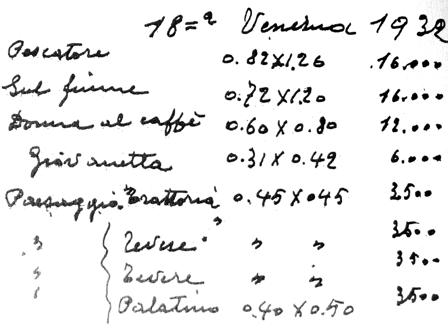 18=ª Venezia 1932
Pescatore 0.82X1.26 16.000
Sul fiume 0.72X1.20 16.000
Donna al caffè 0.60 X 0.80 12.000
Giovanetta 0.31 X 0.42 6.000
Paesaggio Trattoria 0.45 X 045 3500
" Tevere " " " 3500
" Tevere " " 3500
" Palatino 0.40 X 0.50 3500